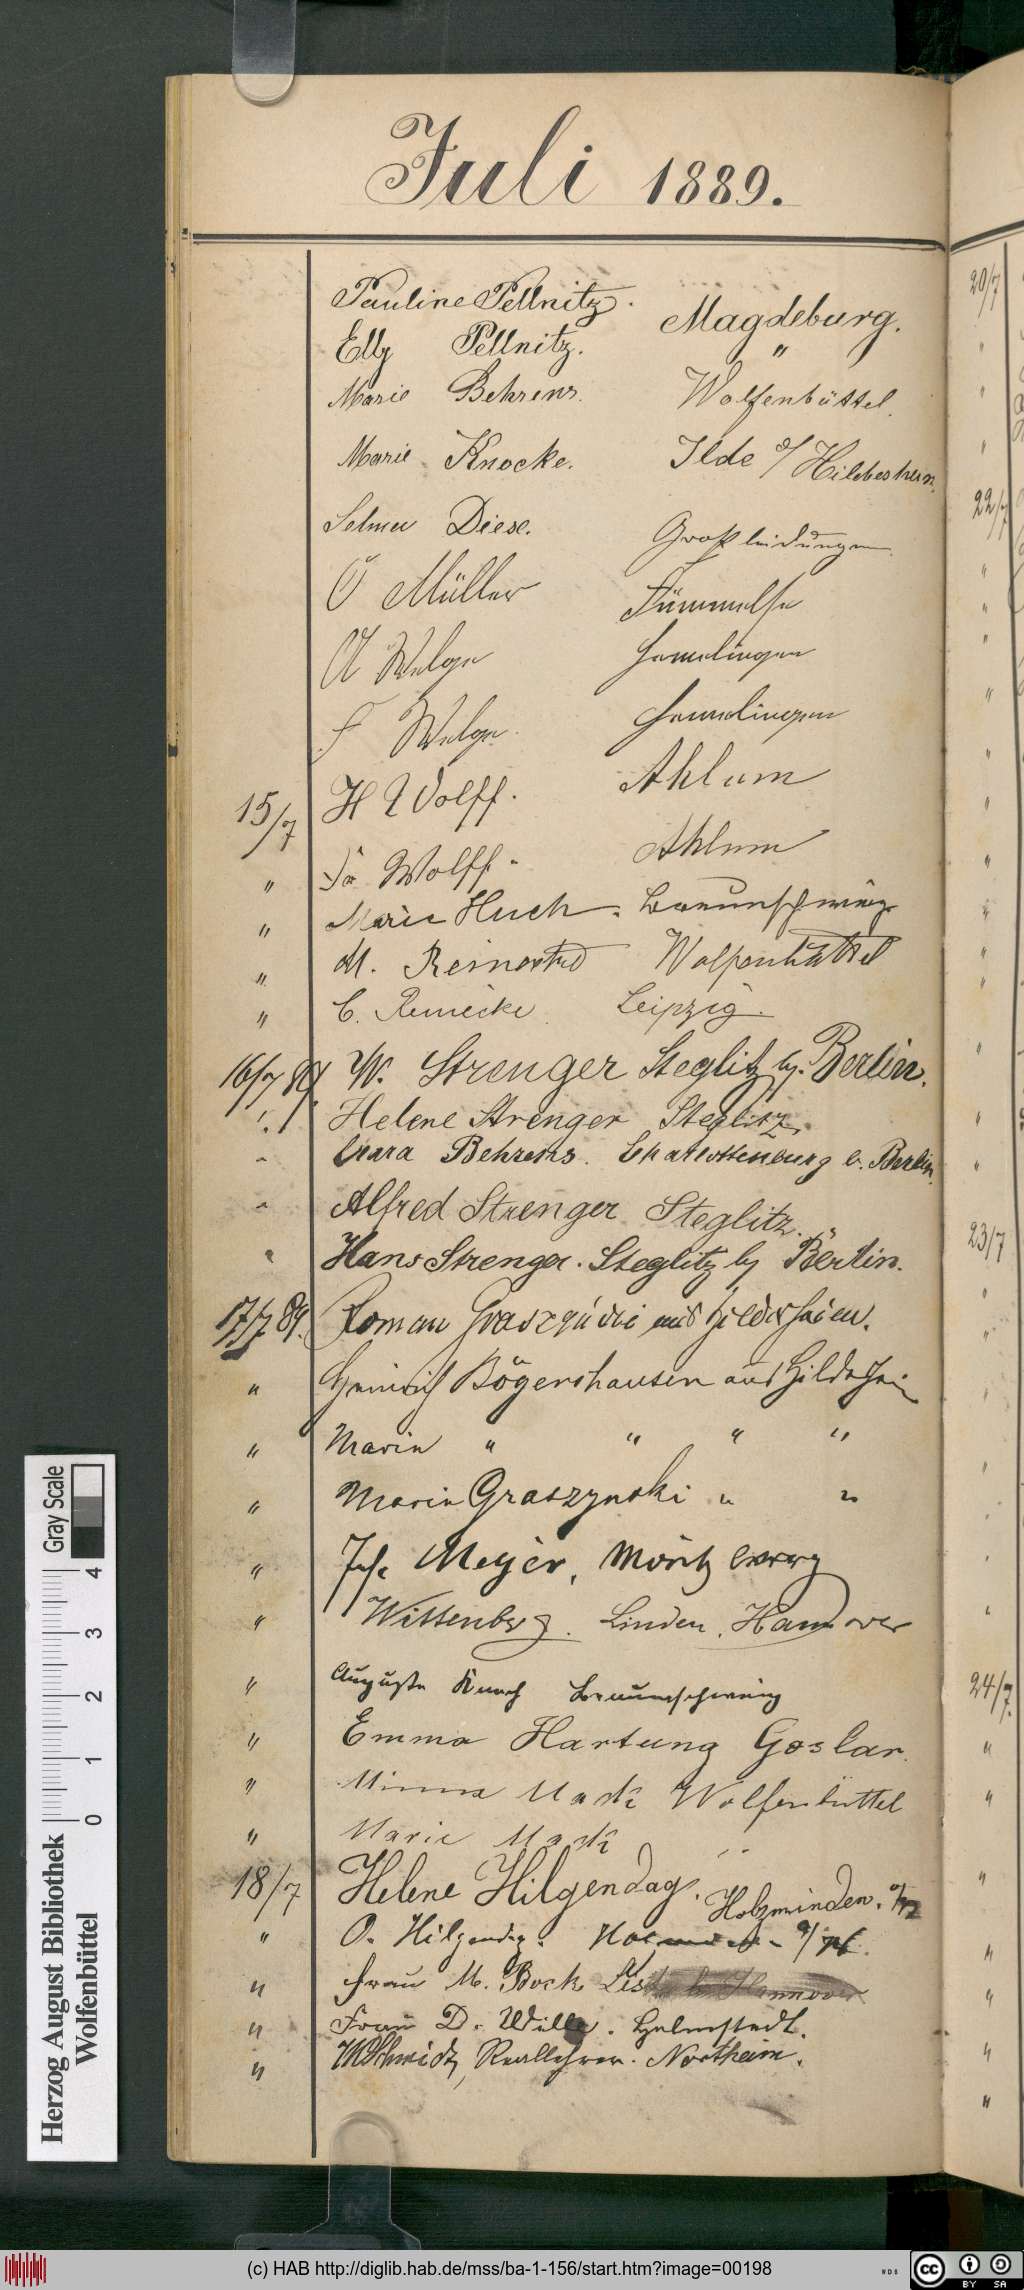 Juli 1889.
Pauline Pellnitz. Magdeburg.
Elly Pellnitz. "
Marie Behrens. Wolfenbüttel.
Marie Knocke. Ilde b/ Hildesheim.
Selma Diese. Großleidungen
O Müller Fümmelse
A Welge Hemelingen
F Welge Hemelingen
15/7 H Wolff. Ahlum
" Fr Wolff. Ahlum
" Marie Huch. Braunschweig
" M. Wolfenbüttel
" C. Reinecke. Leipzig.
16/7 89 W. Strenger Steglitz by. Berlin.
" Helene Strenger Steglitz.
" Clara Behrens. Charlottenburg b. Berlin.
" Alfred Strenger Steglitz.
" Hans Strenger. Steglitz by Berlin.
17/7 89. Roman Graszynski aus Hildesheim.
" Heinrich Bögershausen aus Hildesheim
" Marie " " " "
" Marie Graszynski " "
" Meyer, Moritz
" Wittenberg. Linden. Hannover
" Auguste Braunschweig
" Emma Hartung Goslar.
" Minna Mack Wolfenbüttel
" Marie Mack "
18/7 Helene Hilgendag. Holzminden. a/W
" O. Hilgendag.
" Frau M. Bock List b. Hannover
" Frau D. Wille. Helmstedt.
" Schmidt, Reallehrer. Northeim.
20/7
"
"
"
22/7
"
"
"
"
"
"
"
"
"
"
"
"
"
23/7
"
"
"
"
"
"
"
24/7.
"
"
"
"
"
"
"
Gray Scale
0 1 2 3 4
Herzog August Bibliothek
Wolfenbüttel
(c) HAB http://diglib.hab.de/mss/ba-1-156/start.htm?image=00198
WDB
cc
BY SA